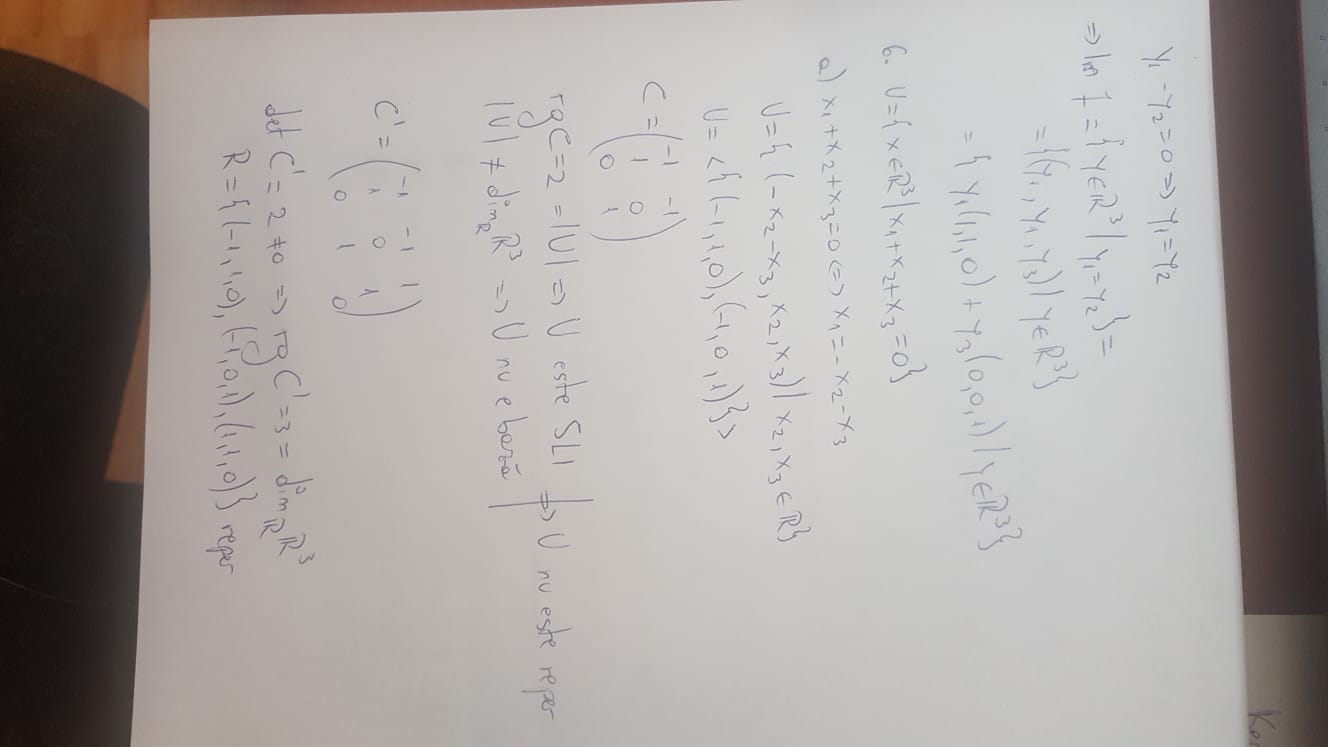 y₁ - y₂ = 0 => y₁ = y₂
=> Im f = { y ∈ ℝ³ | y₁ = y₂ } =
= {(y₁, y₁, y₃) | y ∈ ℝ³}
= { y₁(1,1,0) + y₃(0,0,1) | y ∈ ℝ³}
6. U = { x ∈ ℝ³ | x₁ + x₂ + x₃ = 0}
a) x₁ + x₂ + x₃ = 0 <=> x₁ = -x₂ - x₃
U = { (-x₂ - x₃, x₂, x₃) | x₂, x₃ ∈ ℝ}
U = < { (-1,1,0), (-1,0,1)} >
C = ( -1 -1
1 0
0 1 )
rg C = 2 = |U| => U este SLI
=> U nu este reper
|U| ≠ dim_ℝ ℝ³ => U nu e bază
C' = ( -1 -1 1
1 0 1
0 1 0 )
det C' = 2 ≠ 0 => rg C' = 3 = dim_ℝ ℝ³
R = { (-1,1,0), (-1,0,1), (1,1,0)} reper
Ke